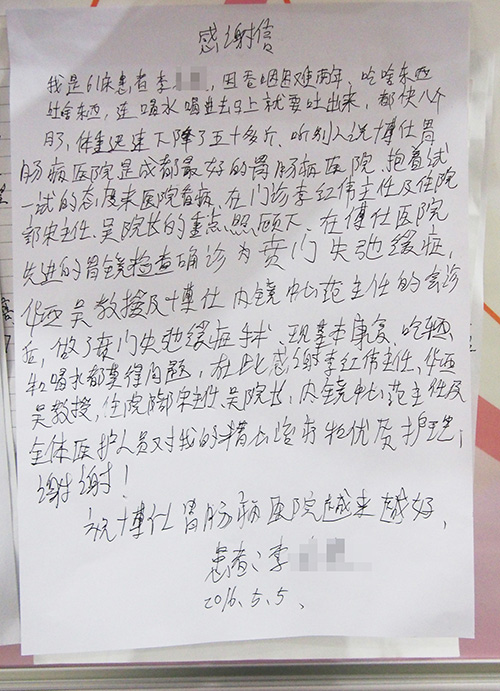 感谢信
我是61床患者李，因吞咽困难两年，吃啥东西
吐啥东西，连喝水喝进去马上就要吐出来，都快八个
月了，体重迅速下降了五十多斤、听别人说博仕胃
肠病医院是成都最好的胃肠病医院、抱着试
一试的态度来医院看病、在门诊李红伟主任及住院
部宋主任、吴院长的重点、照顾下、在博仕医院
先进的胃镜检查确诊为贲门失弛缓症，
华西吴教授及博仕内镜中心范主任的会诊
后，做了贲门失弛缓症手术、现基本康复、吃东西
和喝水都莫得问题，在此感谢李红伟主任、华西
吴教授，住院部宋主任、吴院长，内镜中心范主任及
全体医护人员对我的精心治疗和优质护理，
谢谢！
祝博仕胃肠病医院越来越好，
患者：李
2016.5.5、